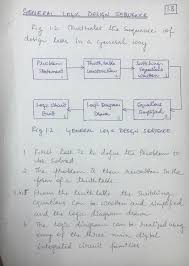 1.8
GENERAL LOGIC DESIGN SEQUENCE
Fig 1.2 illustrates the sequence of
design laws in a general way
Problem Statement
Truth table Construction
Switching Equations Written
Logic Circuit Built
Logic Diagram Drawn
Equations Simplified
Fig 1.2 GENERAL LOGIC DESIGN SEQUENCE
1 First task is to define the Problem to
be Solved
2 The problem is then rewritten in the
form of a truth table
From the truth table the Switching
equations can be written and simplified
and the logic diagram drawn
6 The logic diagram can be realized using
any of the three main digital
integrated circuit families